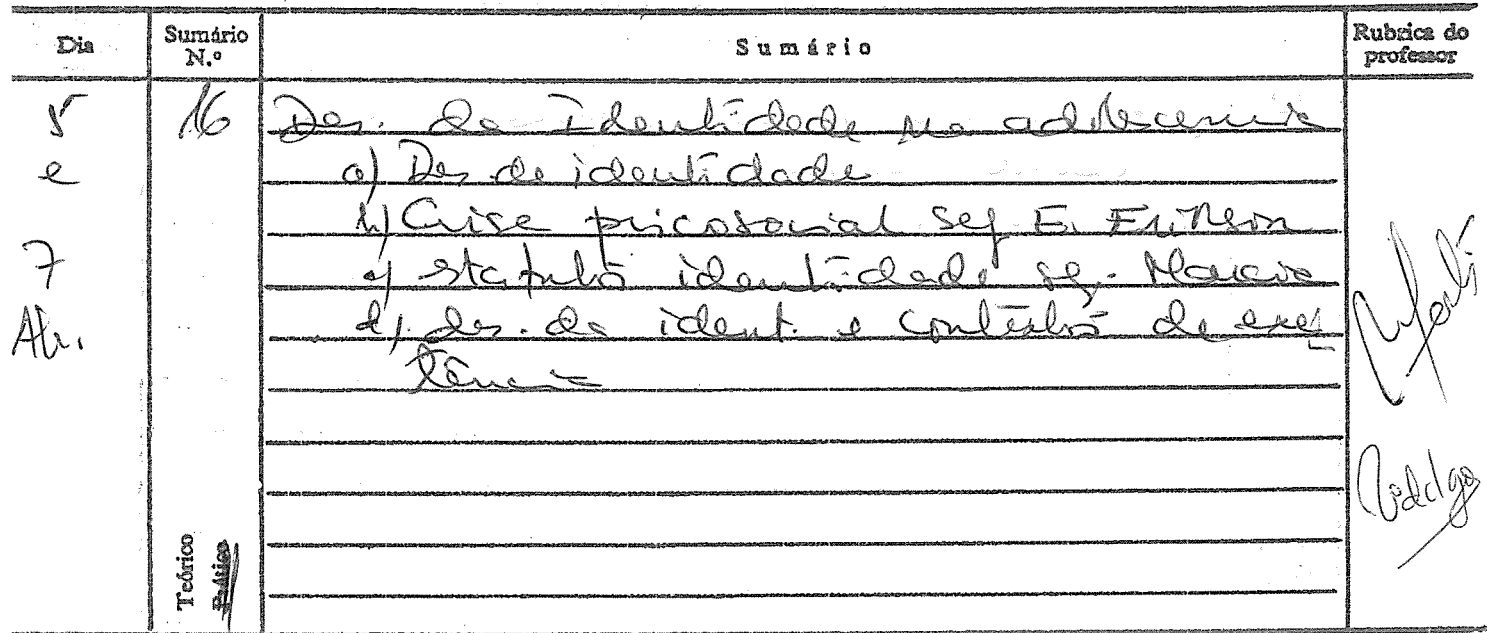 Dia
Sumário N.º
Sumário
Rubrica do professor
5 e 7 Abr.
16
Des. da Identidade na adolescencia
a) Des da identidade
b) Crise psicosocial seg E. Erikson
c) statutos identidade sg. Marcia
d) des. da ident. e contextos de exis
tência
Teórico
Prático
Hidalgo